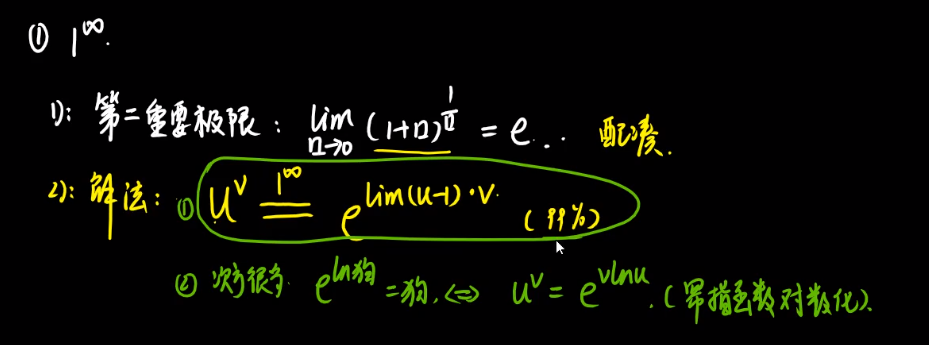 ① 1^∞.
1): 第二重要极限: lim_{□→0} (1+□)^{1/□} = e... 配凑.
2): 解法: ① u^v \overset{1^∞}{=} e^{lim(u-1)·v} (99%)
② 次方很多. e^{ln狗} = 狗. <=> u^v = e^{vlnu}. (幂指函数对数化).